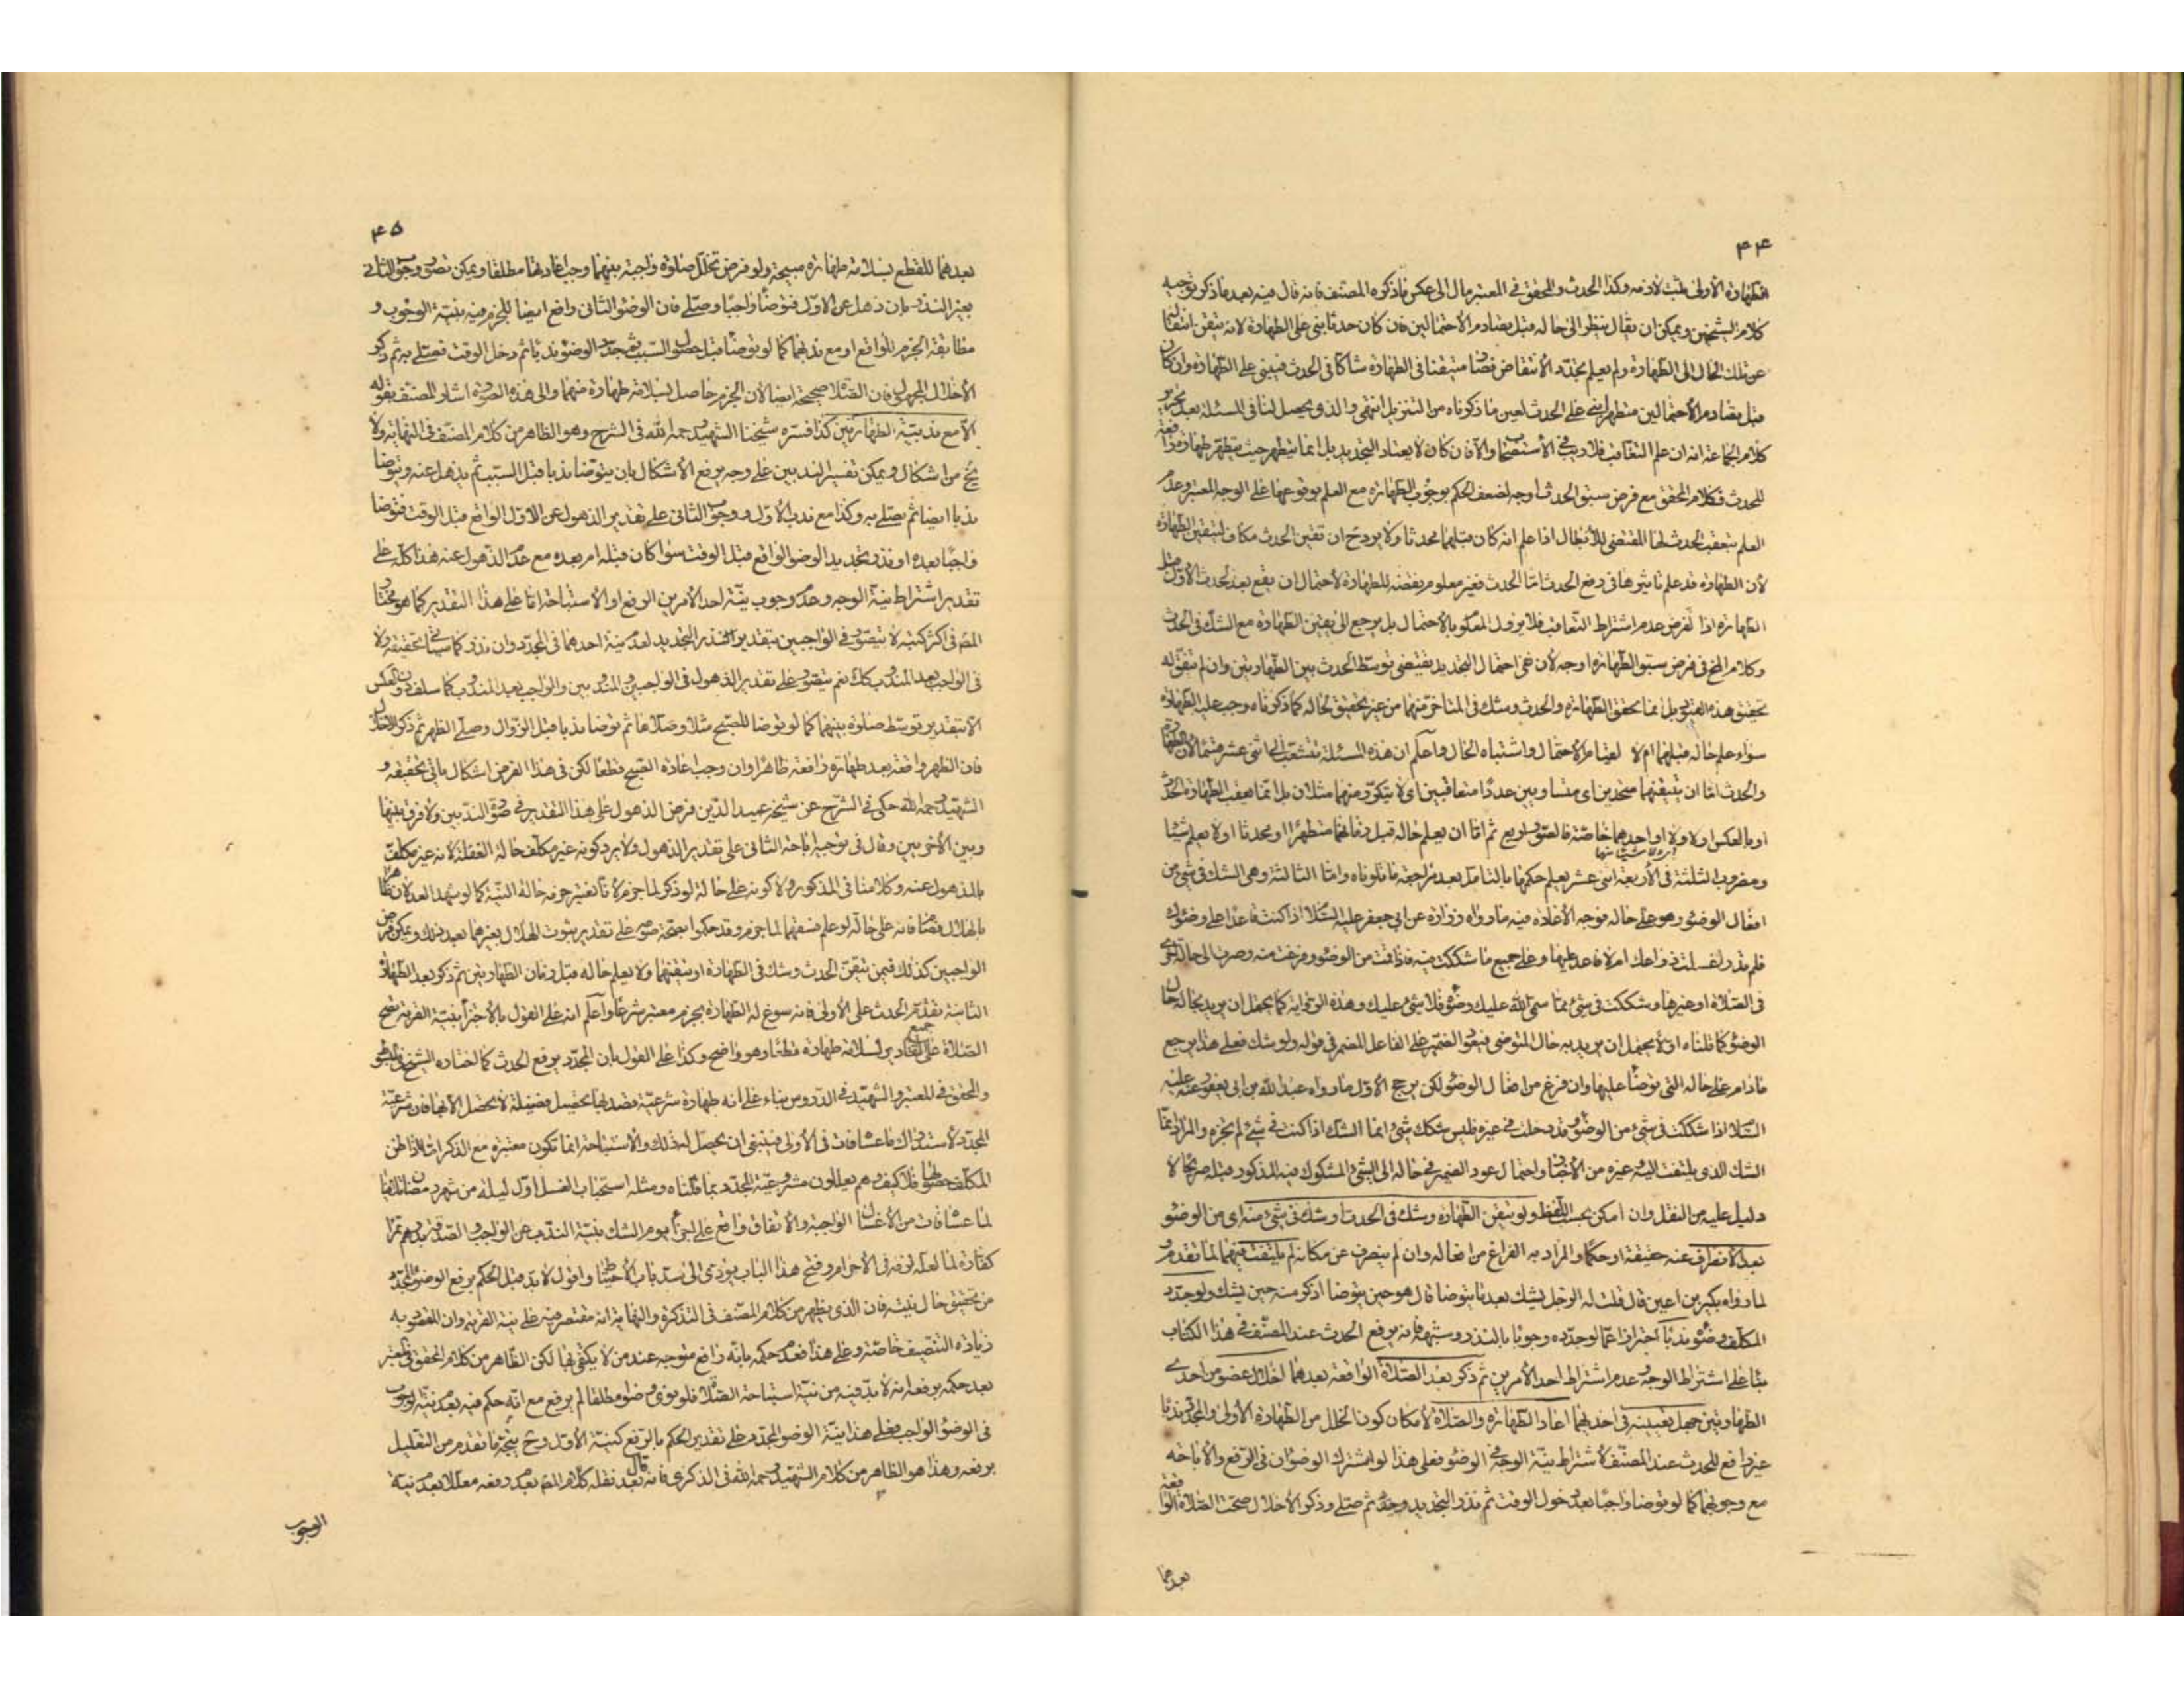 ۴۴
الطهارة الأولى مثبت لازمه وكذا الحدث والمحقق في المعتبر مال الى عكس ما ذكره المصنف فانه قال فيه بعد ما ذكر توجيه
كلام الشيخين ويمكن ان يقال ينظر الى حاله قبل تصادم الاحتمالين فان كان حدثا بنى على الطهارة لانه تيقن انتقاله
عن تلك الحال الى الطهارة ولم يعلم تجدد الانتقاض فصار متيقنا في الطهارة شاكا في الحدث فيبني على الطهارة وان كان
قبل تصادم الاحتمالين متطهرا بنى على الحدث لعين ما ذكرناه من التنزيل انتهى والذي يحصل لنا في المسئلة بعد تحرير
كلام الجماعة انه ان علم التعاقب فلا ريب في الاستصحاب والا فان كان لا يعتاد التجديد بل انما يتطهر حيث يتطهر طهارة رافعة
للحدث فكلام المحقق مع فرض سبق الحدث اوجه لضعف الحكم بوجوب الطهارة مع العلم بوقوعها على الوجه المعتبر وعدم
العلم بتعقب الحدث لها المقتضي للابطال اذا علم انه كان قبلهما محدثا ولا يرد ح ان تقين الحدث مكافئ لتيقن الطهارة
لان الطهارة قد علم تاثيرها في رفع الحدث اما الحدث فغير معلوم نقضه للطهارة لاحتمال ان يقع بعد الحدث الاول قبل
الطهارة اذا لفرض عدم اشتراط التعاقب فلا يزول المعلوم بالاحتمال بل يرجع الى يقين الطهارة مع الشك في الحدث
وكلام المخ في فرض سبق الطهارة اوجه لان نفي احتمال التجديد يقتضي توسط الحدث بين الطهارتين وان لم يتفق له
تحقيق هذه القيود بل انما تحقق الطهارة والحدث وشك في المتاخر منهما من غير تحقيق لحاله كما ذكرناه وجب عليه الطهارة
سواء علم حاله قبلهما ام لا لقيام الاحتمال واشتباه الحال واعلم ان هذه المسئلة تتشعب الى اثنى عشر قسما لان الطهارة
والحدث اما ان يتيقنهما متحدين اى متساويين عددا متعاقبين اى لا يتكرر منهما مثلان بل انما يعقب الطهارة الحدث
او بالعكس اولا ولا او احدهما خاصة فالصور اربع ثم اما ان يعلم حاله قبل زمانهما متطهرا او محدثا او لا يعلم شيئا
ومضروب الثلثة في الاربعة اثنى عشر يعلم حكمها بالتامل بعد مراجعة ما تلوناه واما الثالثة وهى الشك في شئ من
افعال الوضوء وهو على حاله فوجه الاعادة فيه ما رواه زرارة عن ابى جعفر عليه السلام اذا كنت قاعدا على وضوئك
فلم تدر اغسلت ذراعك ام لا فاعد عليهما وعلى جميع ما شككت فيه فاذا قمت من الوضوء وفرغت منه وصرت الى حالة اخرى
في الصلاة او غيرها وشككت في شئ مما سمى الله عليك وضوء فلا شئ عليك وهذه الرواية كما يحتمل ان يريد بحاله حال
الوضوء كما قلناه اولا يحتمل ان يريد به حال المتوضى فيعود الضمير على الفاعل المضمر في قوله ولو شك فعلى هذا يرجع
ما دام على حاله التى توضأ عليها وان فرغ من افعال الوضوء لكن يرجح الاول ما رواه عبد الله بن ابى يعفور عنه عليه
السلام اذا شككت في شئ من الوضوء وقد دخلت في غيره فليس شكك بشئ انما الشك اذا كنت في شئ لم تجزه والمراد بما
الشك الذي يلتفت اليه وغيره من الاخبار واحتمال عود الضمير في حاله الى الشئ المشكوك فيه المذكور قبله صريحا لا
دليل عليه من النقل وان امكن بحسب اللفظ ولو تيقن الطهارة وشك في الحدث او شك في شئ منه اى من الوضوء
بعد الانصراف عنه حقيقة او حكما والمراد به الفراغ من افعاله وان لم ينصرف عن مكانه لم يلتفت فيهما لما تقدم و
لما رواه بكير بن اعين قال قلت له الرجل يشك بعد ما يتوضا قال هو حين يتوضا اذكر منه حين يشك ولو جدد
المكلف وضوء ندبا احترازا عما لو جدده وجوبا بالنذر وشبهه فانه يرفع الحدث عند المصنف في هذا الكتاب
بناء على اشتراط الوجه وعدم اشتراط احد الامرين ثم ذكر بعد الصلاة الواقعة بعدهما اخلال عضو من احدى
الطهارتين جهل تعيينه في احدهما اعاد الطهارة والصلاة لامكان كون الخلل من الطهارة الاولى والمجددة ندبا
غير رافع للحدث عند المصنف لاشتراط نية الوجه في الوضوء فعلى هذا لو اشترك الوضوان في الرفع والاباحة
مع وجوبهما كما لو توضا واجبا بعد دخول الوقت ثم نذر التجديد وجدد ثم صلى وذكر الاخلال صحت الصلاة الواقعة
بعدهما
۴۵
بعدهما للقطع بسلامة طهارة مبيحة ولو فرض تخلل صلوة واجبة بينهما وجب اعادتها مطلقا ويمكن تصور وجوب الثانى
بغير النذر بان ذهل عن الاول فتوضأ واجبا وصلى فان الوضوء الثانى واقع ايضا للجزم فيه بنية الوجوب و
مطابقة الجزم للواقع او مع ندبهما كما لو توضأ قبل حصول السبب ثم جدد الوضوء ندبا ثم دخل الوقت فصلى به ثم ذكر
الاخلال المجهول فان الصلاة صحيحة ايضا لان الجزم حاصل لسلامة طهارة منهما والى هذه الصورة اشار المصنف بقوله
الا مع ندبية الطهارتين كذا فسره شيخنا الشهيد رحمه الله في الشرح وهو الظاهر من كلام المصنف في النهاية ولا
يخ من اشكال ويمكن تفسير الندبين على وجه يرفع الاشكال بان يتوضا ندبا قبل السبب ثم يذهل عنه ويتوضا
ندبا ايضا ثم يصلى به وكذا مع ندب الاول ووجوب الثانى على تقدير الذهول عن الاول الواقع قبل الوقت فتوضا
واجبا بعده او نذر تجديد الوضوء الواقع قبل الوقت سواء كان قبله ام بعده مع عدم الذهول عنه هذا كله على
تقدير اشتراط نية الوجه وعدم وجوب نية احد الامرين الرفع او الاستباحة اما على هذا التقدير كما هو مختار
المص في اكثر كتبه لا يتصور في الواجبين بتقدير النذر التجديد لعدم نية احدهما في المجدد وان نذر كما سيأتى تحقيقه ولا
في الواجب بعد المندوب كك نعم يتصور على تقدير الذهول في الواجبين والمندوبين والواجب بعد المندوب كما سلف دون العكس
الا بتقدير توسط صلوة بينهما كما لو توضا للصبح مثلا وصلاها ثم توضا ندبا قبل الزوال وصلى الظهر ثم ذكر الاخلال
فان الظهر واقعة بعد طهارة رافعة ظاهرا وان وجب اعادة الصبح قطعا لكن في هذا الفرض اشكال ياتى تحقيقه و
الشهيد رحمه الله حكى في الشرح عن شيخه عميد الدين فرض الذهول على هذا التقدير في صورة الندبين ولا فرق بينها
وبين الاخريين وقال في توجيه اباحة الثانى على تقدير الذهول ولا يرد كونه غير مكلف حالة الغفلة لانه غير مكلف
بالمذهول عنه وكلامنا في المذكور ولا كونه على حالة لو ذكر لما جزم لانا نعتبر جزمه حالة النية كما لو شهد العدلان ظاهرا
بالهلال فصام فانه على حالة لو علم فسقهما لما جزم وقد حكموا بصحة صومه على تقدير ثبوت الهلال بغيرهما بعد ذلك ويمكن فرض
الواجبين كذلك فيمن تيقن الحدث وشك في الطهارة او تيقنهما ولا يعلم حاله قبل زمان الطهارتين ثم ذكر بعد الطهارة
الثانية تقدم الحدث على الاولى فانه سوغ له الطهارة بجزم معتبر شرعا واعلم انه على القول بالاجتزاء بنية القربة تصح
الصلاة على جميع التقادير لسلامة طهارة قطعا وهو واضح وكذا على القول بان المجدد يرفع الحدث كما اختاره الشيخ في المبسوط
والمحقق في المعتبر والشهيد في الدروس بناء على انه طهارة شرعية قصد بها تحصيل فضيلة لا تحصل الا بها فان شرعية
المجدد لاستدراك ما عساه فات في الاولى فينبغى ان يحصل له ذلك والاستباحة انما تكون معتبرة مع الذكر اما اذا ظن
المكلف حصولها فلا كيف وهم يعللون مشروعية المجدد بما قلناه ومثله استحباب الغسل اول ليلة من شهر رمضان تلافيا
لما عساه فات من الاغسال الواجبة والاتفاق واقع على اجزاء يوم الشك بنية الندب عن الواجب والصدقة بدرهم تمرا
كفارة لما لعله لزمه في الاحرام وفتح هذا الباب يؤدى الى سد باب الاحتياط واقول لا بد قبل الحكم برفع الوضوء المجدد
من تحقيق حال نيته فان الذي يظهر من كلام المصنف في التذكرة والنهاية انه مقتصر فيه على نية القربة وان المقصود به
زيادة التنصيف خاصة وعلى هذا فعدم حكمه بانه رافع متوجه عند من لا يكتفى بها لكن الظاهر من كلام المحقق في المعتبر
بعد حكمه برفعه انه لا بد فيه من نية استباحة الصلاة فلو نوى وضوء مطلقا لم يرفع مع انه حكم فيه بعدم نية الوجوب
في الوضوء الواجب فعلى هذا نية الوضوء المجدد على تقدير الحكم بالرفع كنية الاول وح يتجه ما تقدم من التعليل
برفعه وهذا هو الظاهر من كلام الشهيد رحمه الله في الذكرى فانه قال بعد نقله كلام المص بعدم رفعه معللا بعدم نية
الوجوب